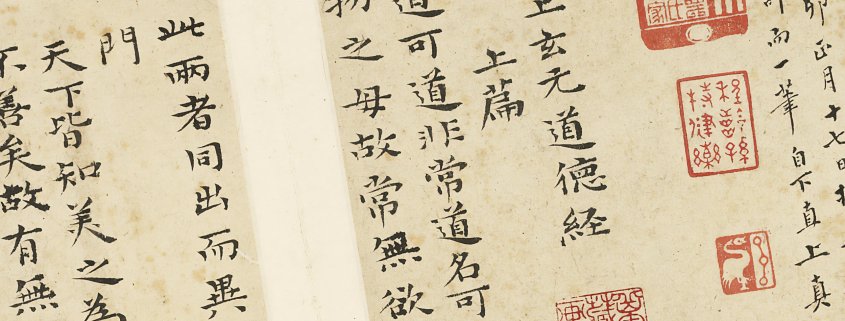 卯正月十七日
而一筆自下真上真
上玄元道德経
上篇
道可道非常道名可
物之母故常無欲
此兩者同出而異
門
天下皆知美之為
不善矣故有無